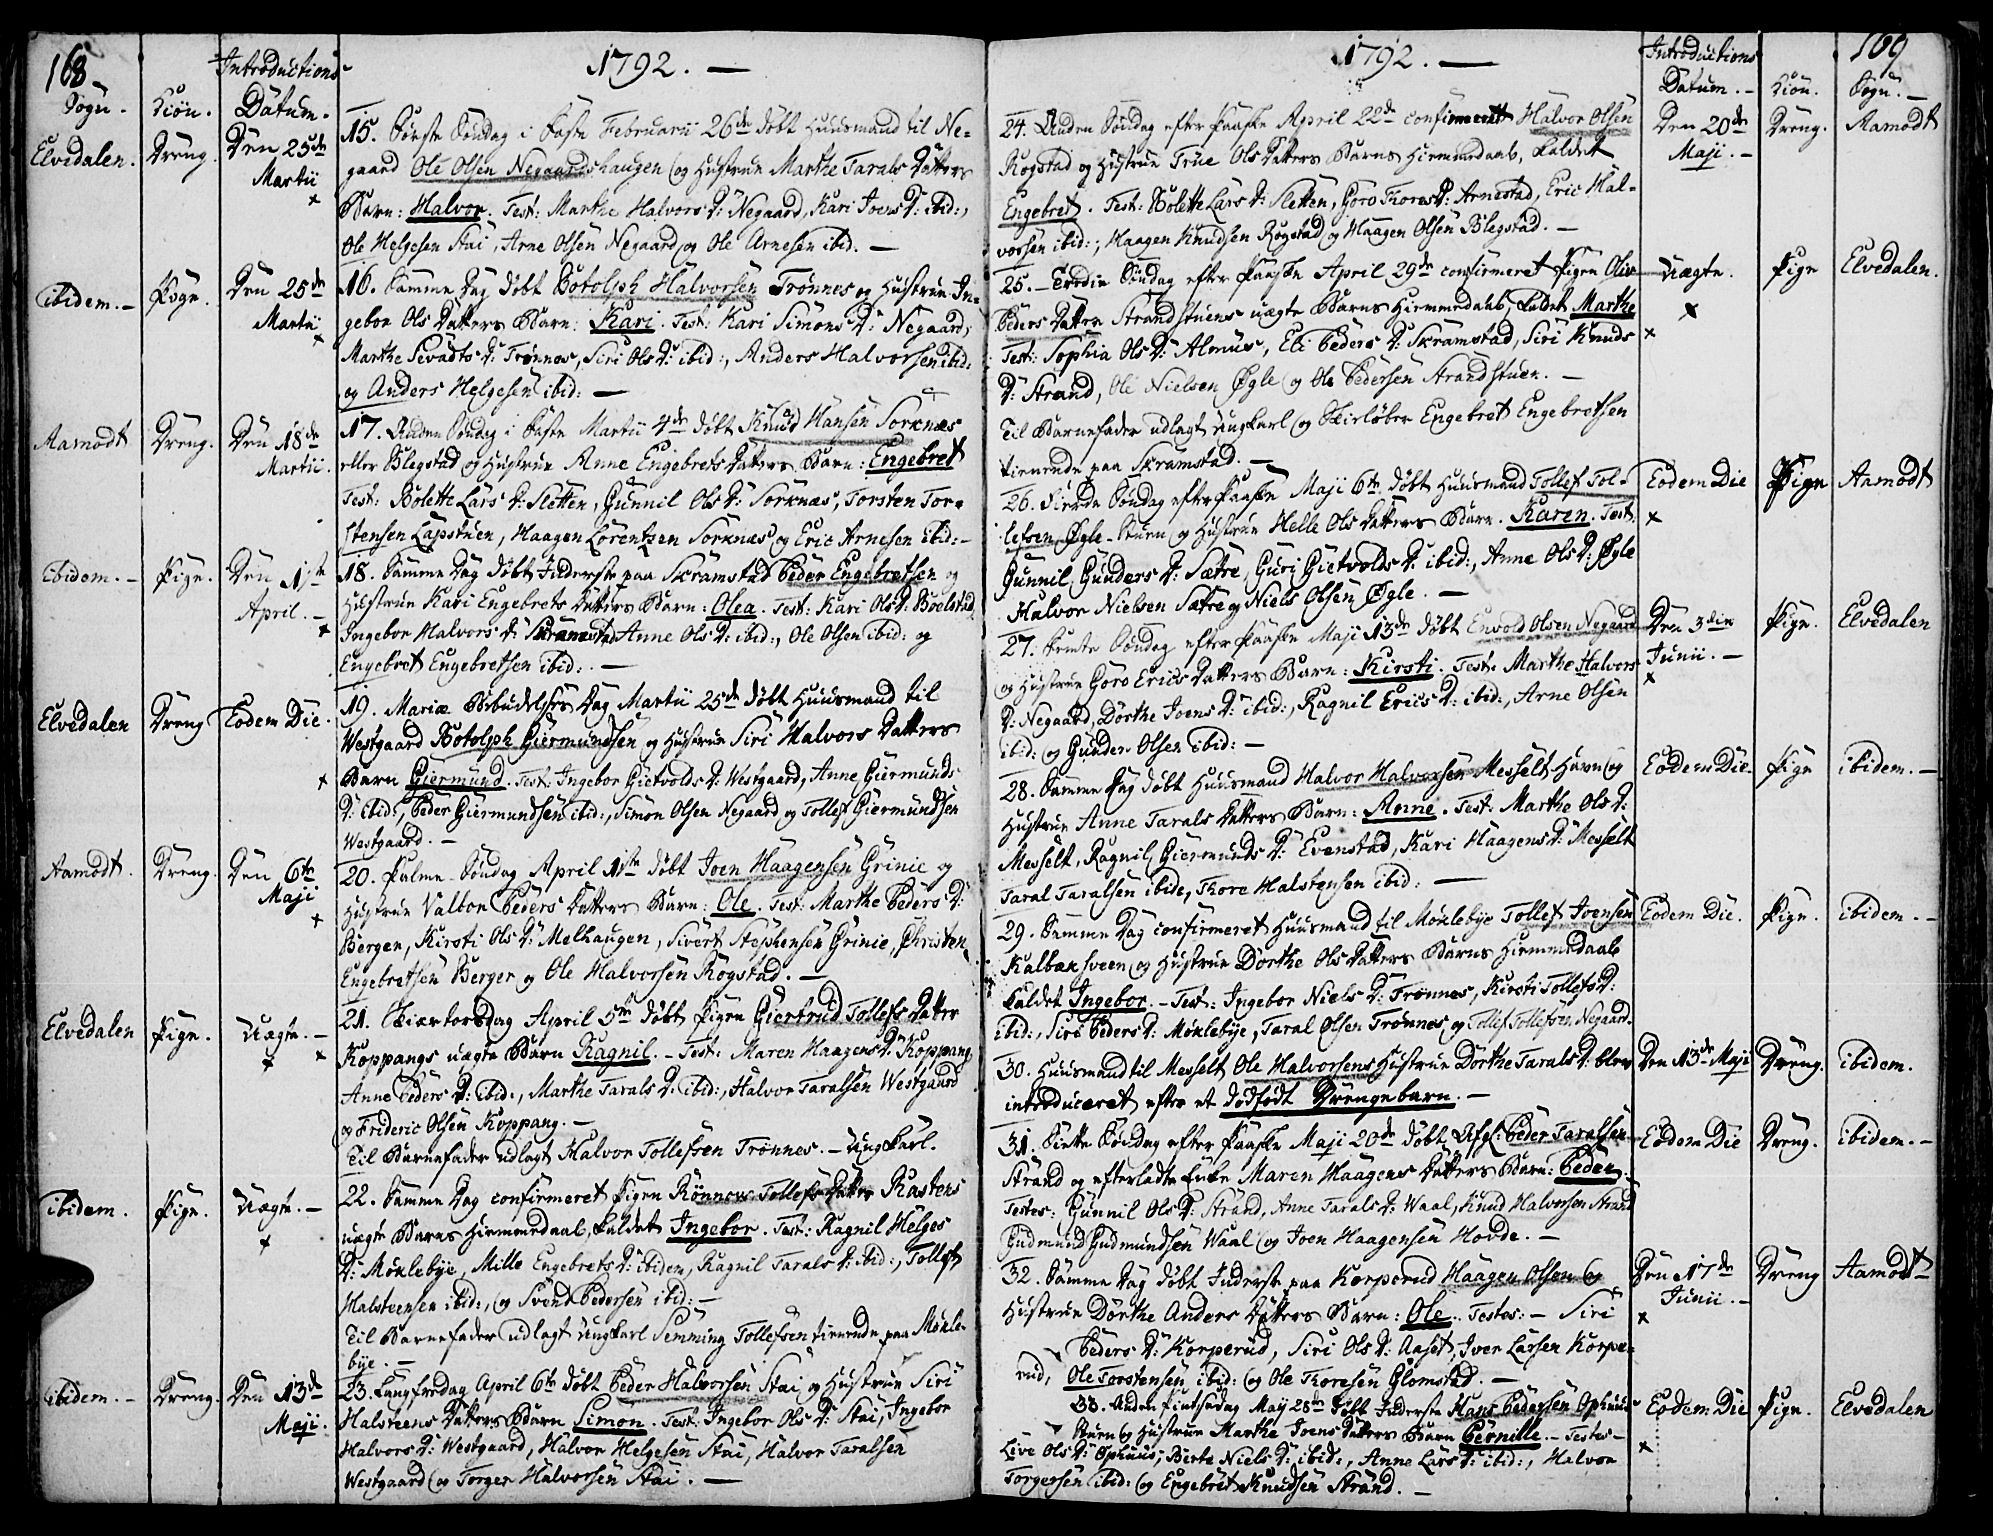 168
1792. —
Sogn. Kiön. Introductions Datum.
Elvedalen. Dreng. Den 25de Martii
15. Første Søndag i Faste Februarii 26de döbt Huusmand til Ne-
gaard Ole Olsen Negaardshaugen og Hustrue Marthe Tarals Datters
Barn: Halvor. Test: Marthe Halvors D: Negaard, Kari Joens D: ibid:,
Ole Helgesen Stai, Arne Olsen Negaard og Ole Arnesen ibid. —
ibidem. — Pige. Den 25de Martii
16. Samme Dag döbt Botolph Halvorsen Trönnes og Hustrue In-
gebor Ols Datters Barn: Kari. Test: Kari Simons D: Negaard,
Marthe Sevadts D: Trönnes, Siri Ols D: ibid:, Anders Halvorsen ibid.
og Anders Helgesen ibid: —
Aamodt Dreng. Den 18de Martii.
17. Anden Søndag i Faste Martii 4de döbt Knud Hansen Sorknæs
eller Blegstad og Hustrue Anne Engebrets Datters Barn: Engebret
Test: Bolette Lars D: Sletten, Gunnil Ols D: Sorknæs, Torsten Tor-
stensen Lapstuen, Haagen Lorentzen Sorknæs og Eric Arnesen ibid:—
ibidem. — Pige. Den 1ste April. —
18. Samme Dag döbt Inderste paa Skramstad Peder Engebretsen og
Hustrue Kari Engebrets Datters Barn: Olea. Test: Kari Ols D: Bolstad,
Ingebor Halvors D: Skramstad Anne Ols D: ibid:, Ole Olsen ibid: og
Engebret Engebretsen ibid:. —
Elvedalen Dreng Eodem Die.
19. Mariæ Bebudelses Dag Martii 25de döbt Huusmand til
Westgaard Botolph Giermundsen og Hustrue Siri Halvors Datters
Barn Giermund. Test. Ingebor Gietvolds D: Westgaard, Anne Giermunds
D: ibid:, Peder Giermundsen ibid:, Simon Olsen Negaard og Tollef Giermundsen
Westgaard. —
Aamodt. Dreng. Den 6te Maji
20. Palme Søndag April 1ste döbt Joen Haagensen Grinie og
Hustrue Valbor Peders Datters Barn: Ole. Test: Marthe Peders D:
Bergen, Kirsti Ols D: Melhaugen, Sivert Stephensen Grinie, Christen
Engebretsen Berger og Ole Halvorsen Rogstad. —
Elvedalen Pige. Uægte. —
21. Skiærtorsdag April 5te döbt Pigen Giertrud Tollefs Datter
Koppangs uægte Barn Ragnil. — Test: Maren Haagens D: Koppang
Anne Peders D: ibid., Marthe Tarals D: ibid:, Halvor Taralsen Westgaard
og Frideric Olsen Koppang. —
Til Barnefader udlagt Halvor Tollefsen Trönnes. — Ungkarl.
ibidem. Pige. Uægte. —
22. Samme Dag confirmeret Pigen Rönnou Tollefs Datter Rastens
uægte Barns Hiemmedaab, kaldet Ingebor. Test: Ragnil Helges
D: Möklebye, Mille Engebrets D: ibidem, Ragnil Tarals D: ibid:, Tollef
Halsteensen ibid:, og Svend Pedersen ibid: —
Til Barnefader udlagt Ungkarl Semming Tollefsen tienende paa Mökle-
bye. —
ibidem. — Dreng. Den 13de Maji.
23. Langfredag April 6te döbt Peder Halvorsen Stai og Hustrue Siri
Halsteens Datters Barn Simon. Test: Ingebor Ols D: Stai, Ingebor
Halvors D: Westgaard, Halvor Helgesen Stai, Halvor Taralsen
Westgaard og Torger Halvorsen Stai. —
1792. —
169
Introductions Datum. — Kiön. Sogn. —
24. Anden Søndag efter Paaske April 22de confirmeret Halvor Olsen
Rogstad og Hustrue Trüe Ols Datters Barns Hiemmedaab, kaldet
Engebret. Test: Bolette Lars D: Sletten, Goro Thores D: Arnestad, Eric Hal-
vorsen ibid:; Haagen Knudsen Rogstad og Haagen Olsen Blegstad. —
Den 20de Maji. — Dreng. Aamodt
25. — Tredie Søndag efter Paaske April 29de confirmeret Pigen Oliv
Peders Datter Strandstuens uægte Barns Hiemmedaab, kaldet Marthe
Test: Sophia Ols D: Almus, Eli Peders D: Skramstad, Siri Knuds
D: Strand, Ole Nielsen Øgle og Ole Pedersen Strandstuen. —
Til Barnefader udlagt Ungkarl og Skielöber Engebret Engebretsen
tienende paa Skramstad. —
Uægte. Pige Elvedalen.
26. Fierde Søndag efter Paaske Maji 6te döbt Huusmand Tollef Tol-
lefsen Øgle-Stuen og Hustrue Helle Ols Datters Barn. Karen. Test.
Gunnil Gunders D: Sætre, Guri Gietvolds D: ibid:, Anne Ols D: Øgle
Halvor Nielsen Sætre og Niels Olsen Øgle. —
Eodem Die Pige Aamodt
27. Femte Søndag efter Paaske Maji 13de döbt Envold Olsen Negaard
og Hustrue Goro Erics Datters Barn: Kirsti. Test: Marthe Halvors
D: Negaard, Dorthe Joens D: ibid:, Ragnil Erics D: ibid:, Arne Olsen
ibid: og Gunder Olsen ibid: —
Den 3die Junii. — Pige. Elvedalen
28. Samme Dag döbt Huusmand Halvor Halvorsen Messelt Havn og
Hustrue Anne Tarals Datters Barn: Anne. Test: Marthe Ols D:
Messelt, Ragnil Giermunds D: Evenstad, Kari Haagens D: Messelt
Taral Taralsen ibid:, Thore Halstensen ibid: —
Eodem Die Pige ibidem. —
29. Samme Dag confirmeret Huusmand til Möklebye Tollef Joensen
Kalbæksveen og Hustrue Dorthe Ols Datters Barns Hiemmedaab
kaldet Ingebor. — Test: Ingebor Niels D: Trönnes, Kirsti Tollefs D:
ibid:, Siri Peders D: Möklebye, Taral Olsen Trönnes og Tollef Tollefsen Negaard.
Eodem Die. Pige. ibidem. —
30. Huusmand til Messelt Ole Halvorsens Hustrue Dorthe Tarals D: blev
introduceret efter et dödfödt Drengebarn. —
Den 13de Maji Dreng. ibidem.
31. Siette Søndag efter Paaske Maji 20de döbt Afgl: Peder Taralsen
Strand og efterladte Enke Maren Haagens Datters Barn: Peder.
Testes: Gunnil Ols D: Strand, Anne Tarals D: Waal, Knud Halvorsen Strand
Gudmund Gudmundsen Waal og Joen Haagensen Hovde. —
Eodem Die Dreng. ibidem. —
32. Samme Dag döbt Inderste paa Korperud Haagen Olsen og
Hustrue Dorthe Anders Datters Barn: Ole. Testes: — Siri
Peders D: Korperud, Siri Ols D: Aaset, Iver Larsen Korpe-
rud, Ole Torstensen ibid: og Ole Thoresen Glomstad. —
Den 17de Junii. — Dreng Aamodt
33. Anden Pintsedag Maij 28de döbt Inderste Hans Pedersen Ophuus-
Stuen og Hustrue Marthe Joens Datters Barn Pernille. — Testes —
Live Ols D: Ophuus, Berte Niels D: ibid:, Anne Lars D: ibid:, Halvor
Torgersen ibid: og Engebret Knudsen Strand. —
Eodem Die Pige. Elvedalen